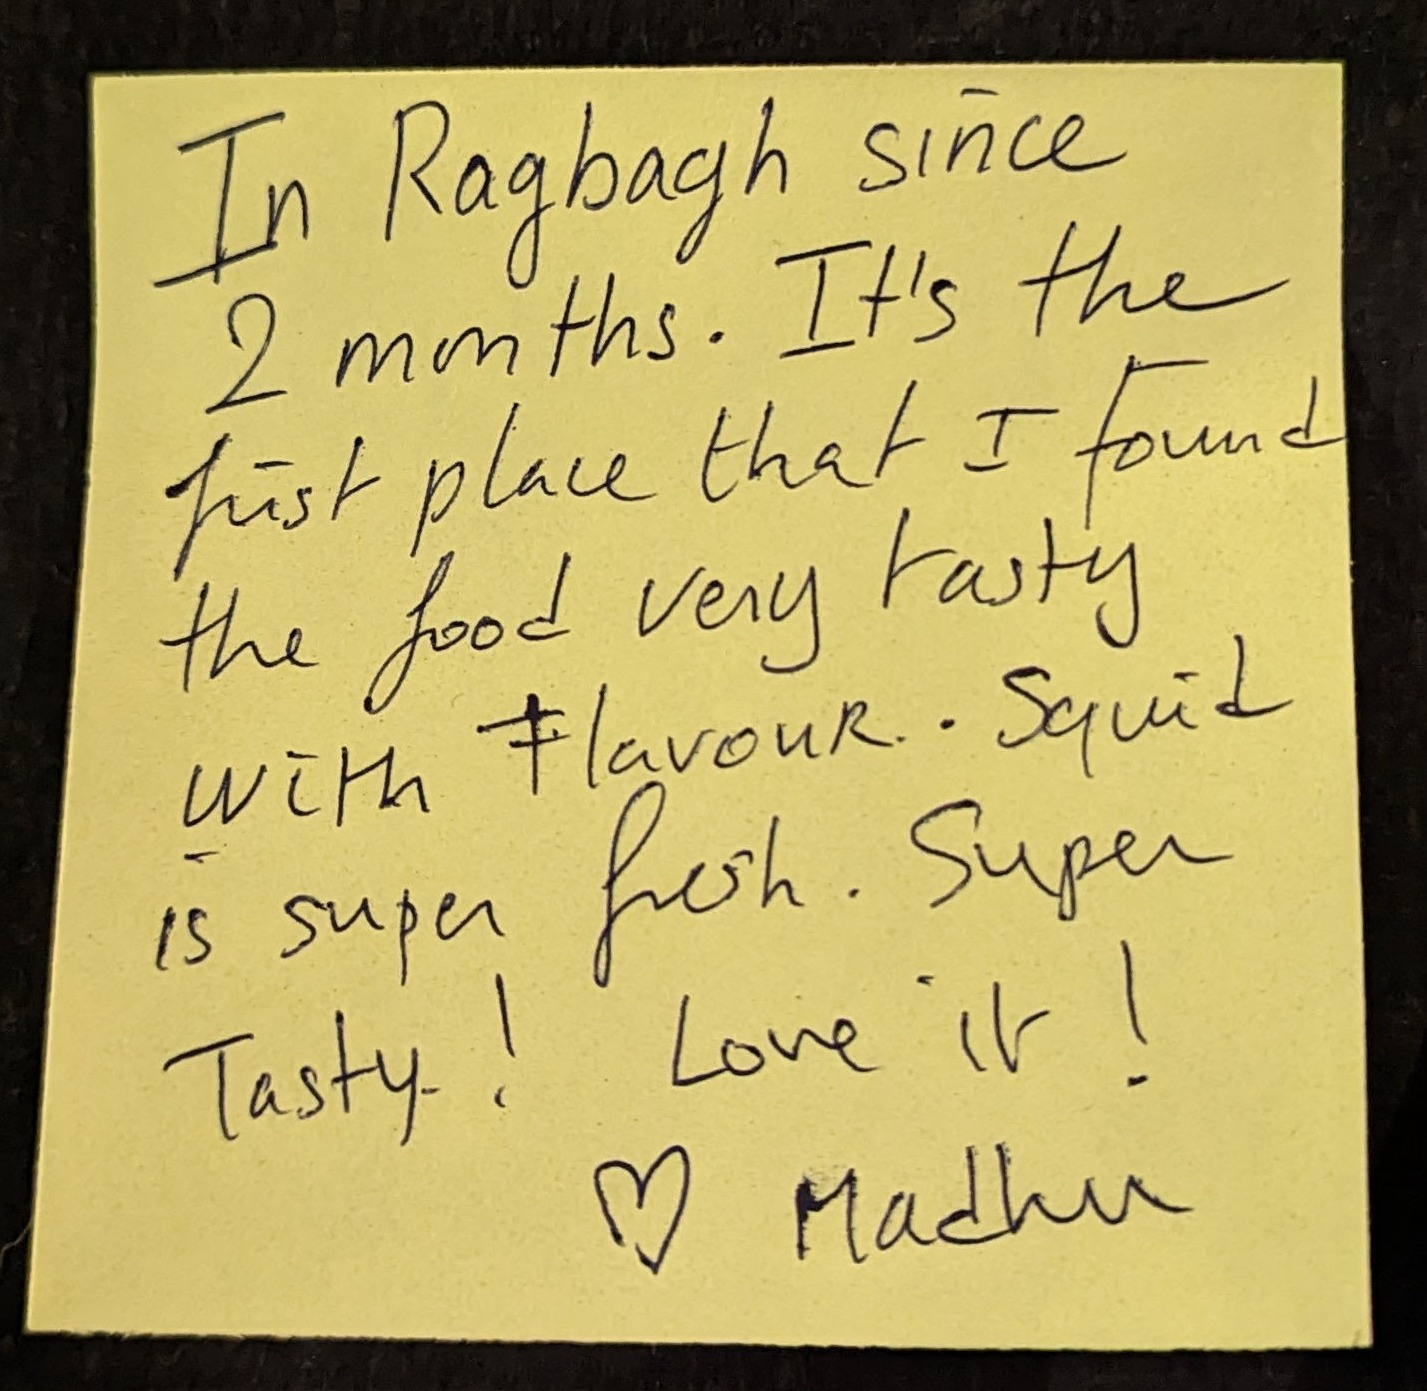 In Ragbagh since
2 months. It's the
first place that I found
the food very tasty
with Flavour.. Squid
is super fresh. Super
Tasty! Love it!
♡ Madhu